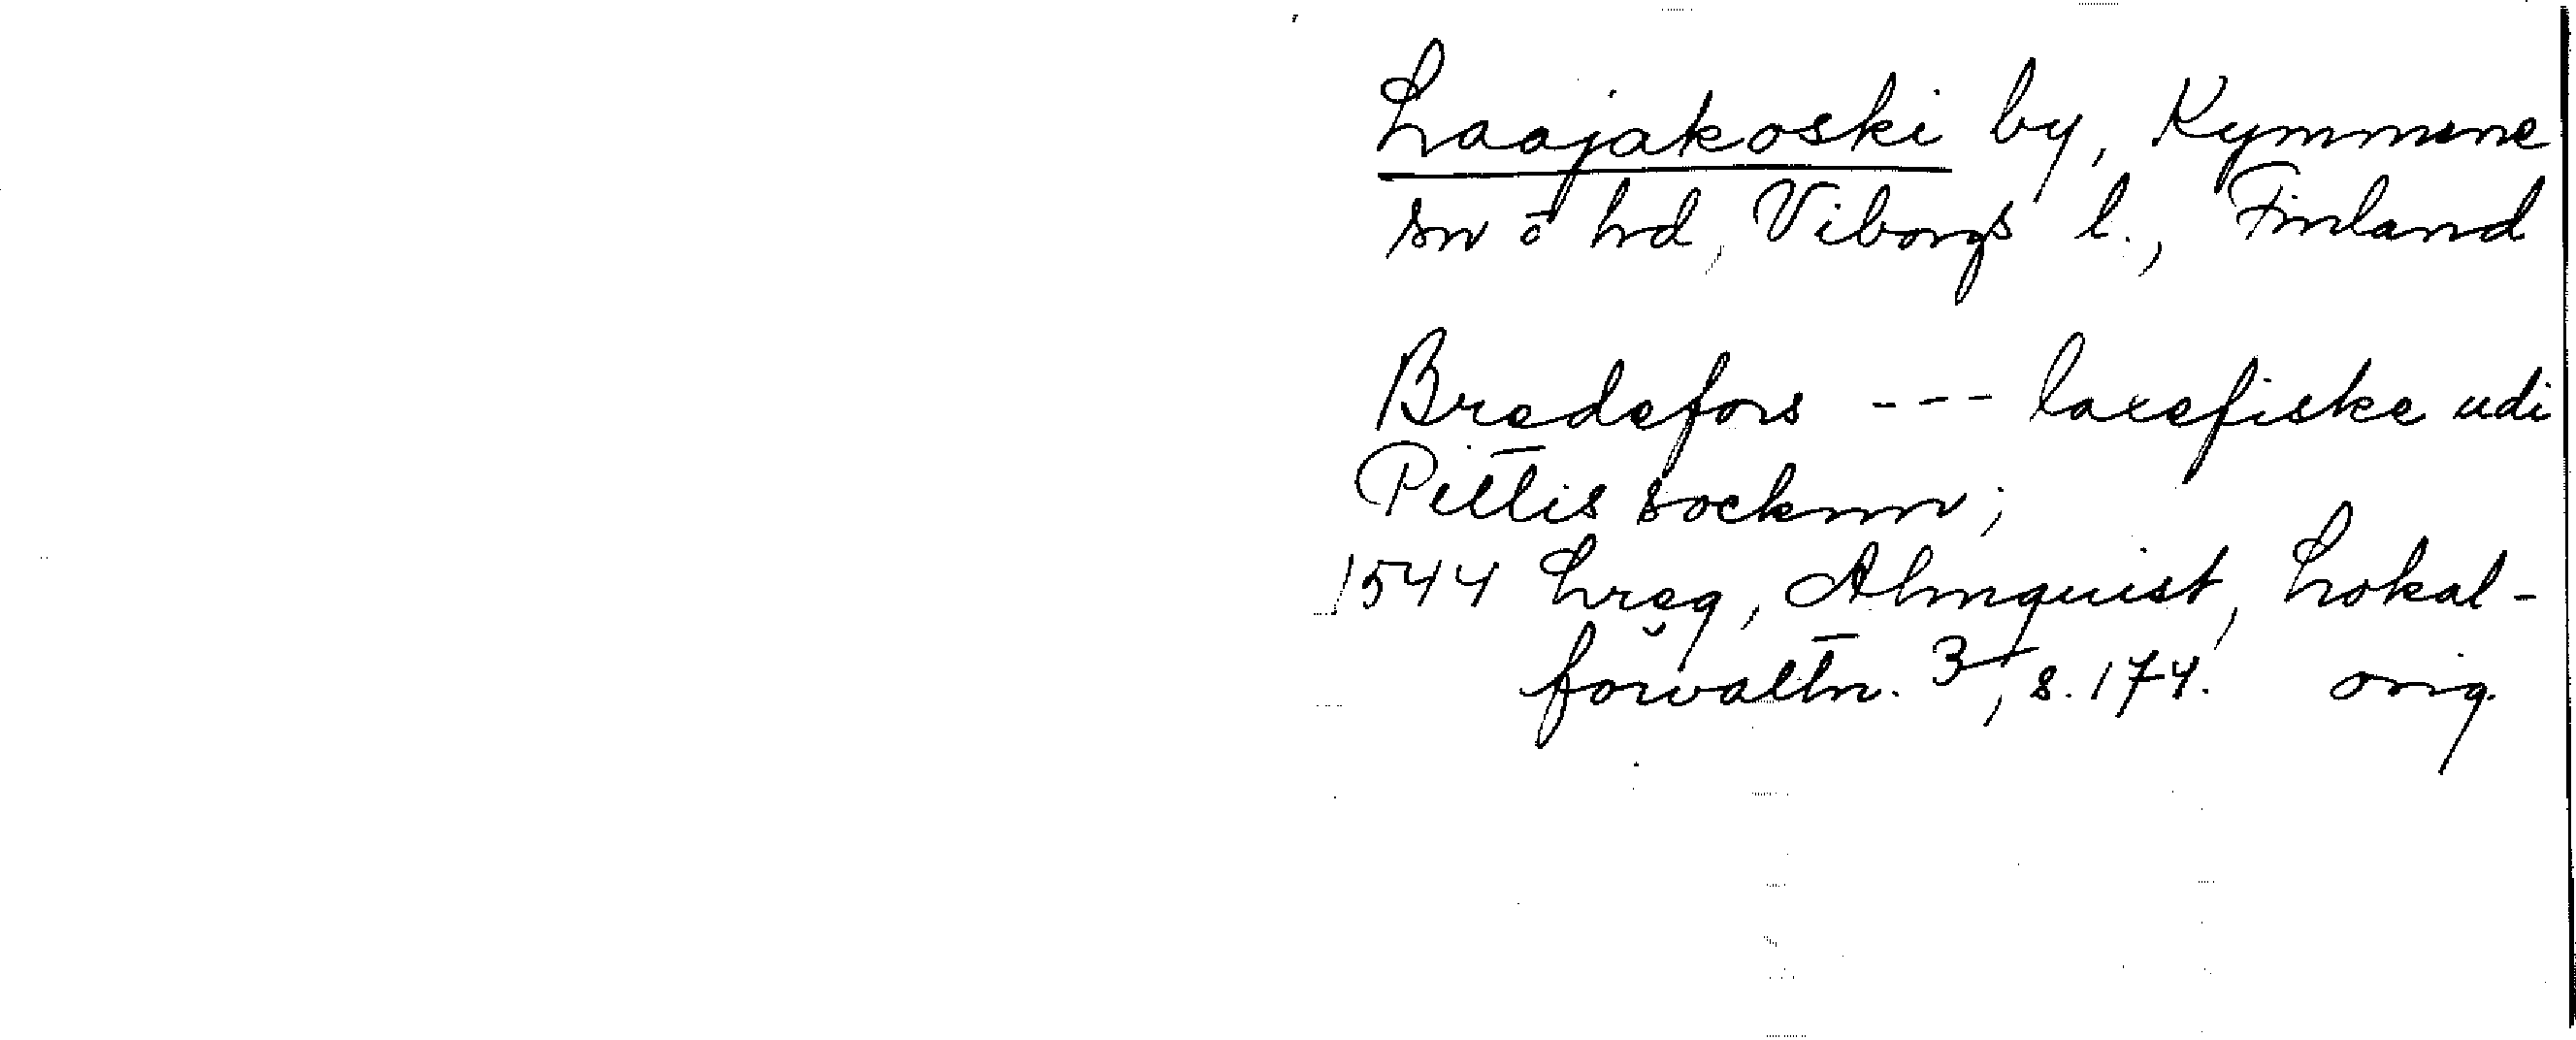 Laajakoski by, Kymmene
sn o hd, Viborgs l., Finland
Bredefors --- laxefiske udi
Pettis socknn;
1544 Lreg, Almquist, Lokal-
förvaltn. 3, s. 174. orig.